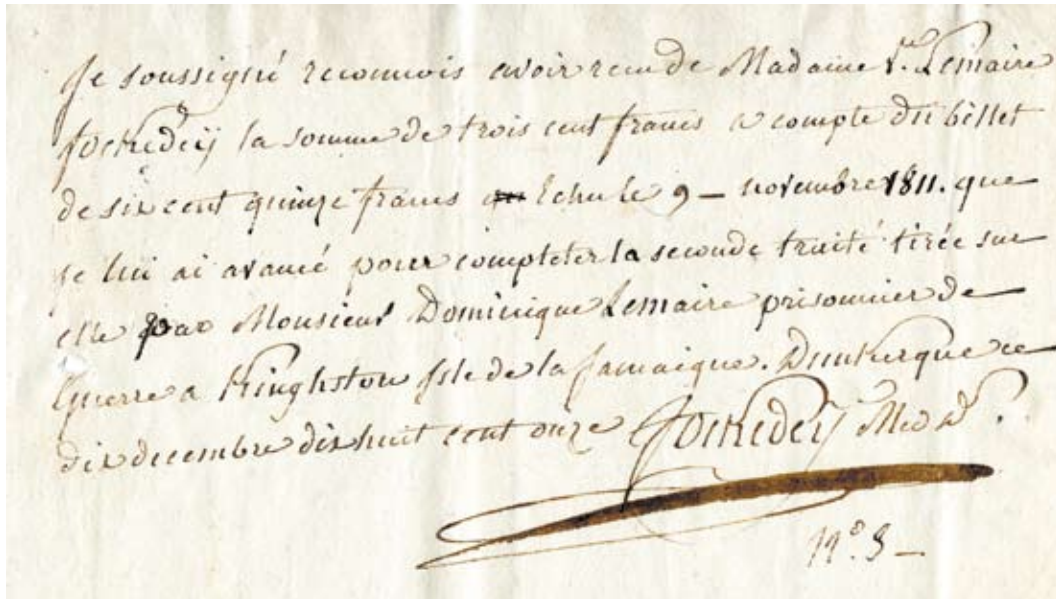 Je soussigné reconnois avoir recu de Madame V.ve Lemaire
fockedeÿ la somme de trois cent francs a compte du billet
de six cent quinze francs Echu le 9 - novembre 1811. que
je lui ai avancé pour completer la seconde traite tirée sur
elle par Monsieur Dominique Lemaire prisonnier de
Guerre a Kinghston Isle de la Jamaique. Dunkerque ce
dix decembre dix huit cent onze fockedeÿ
N.º 3 -